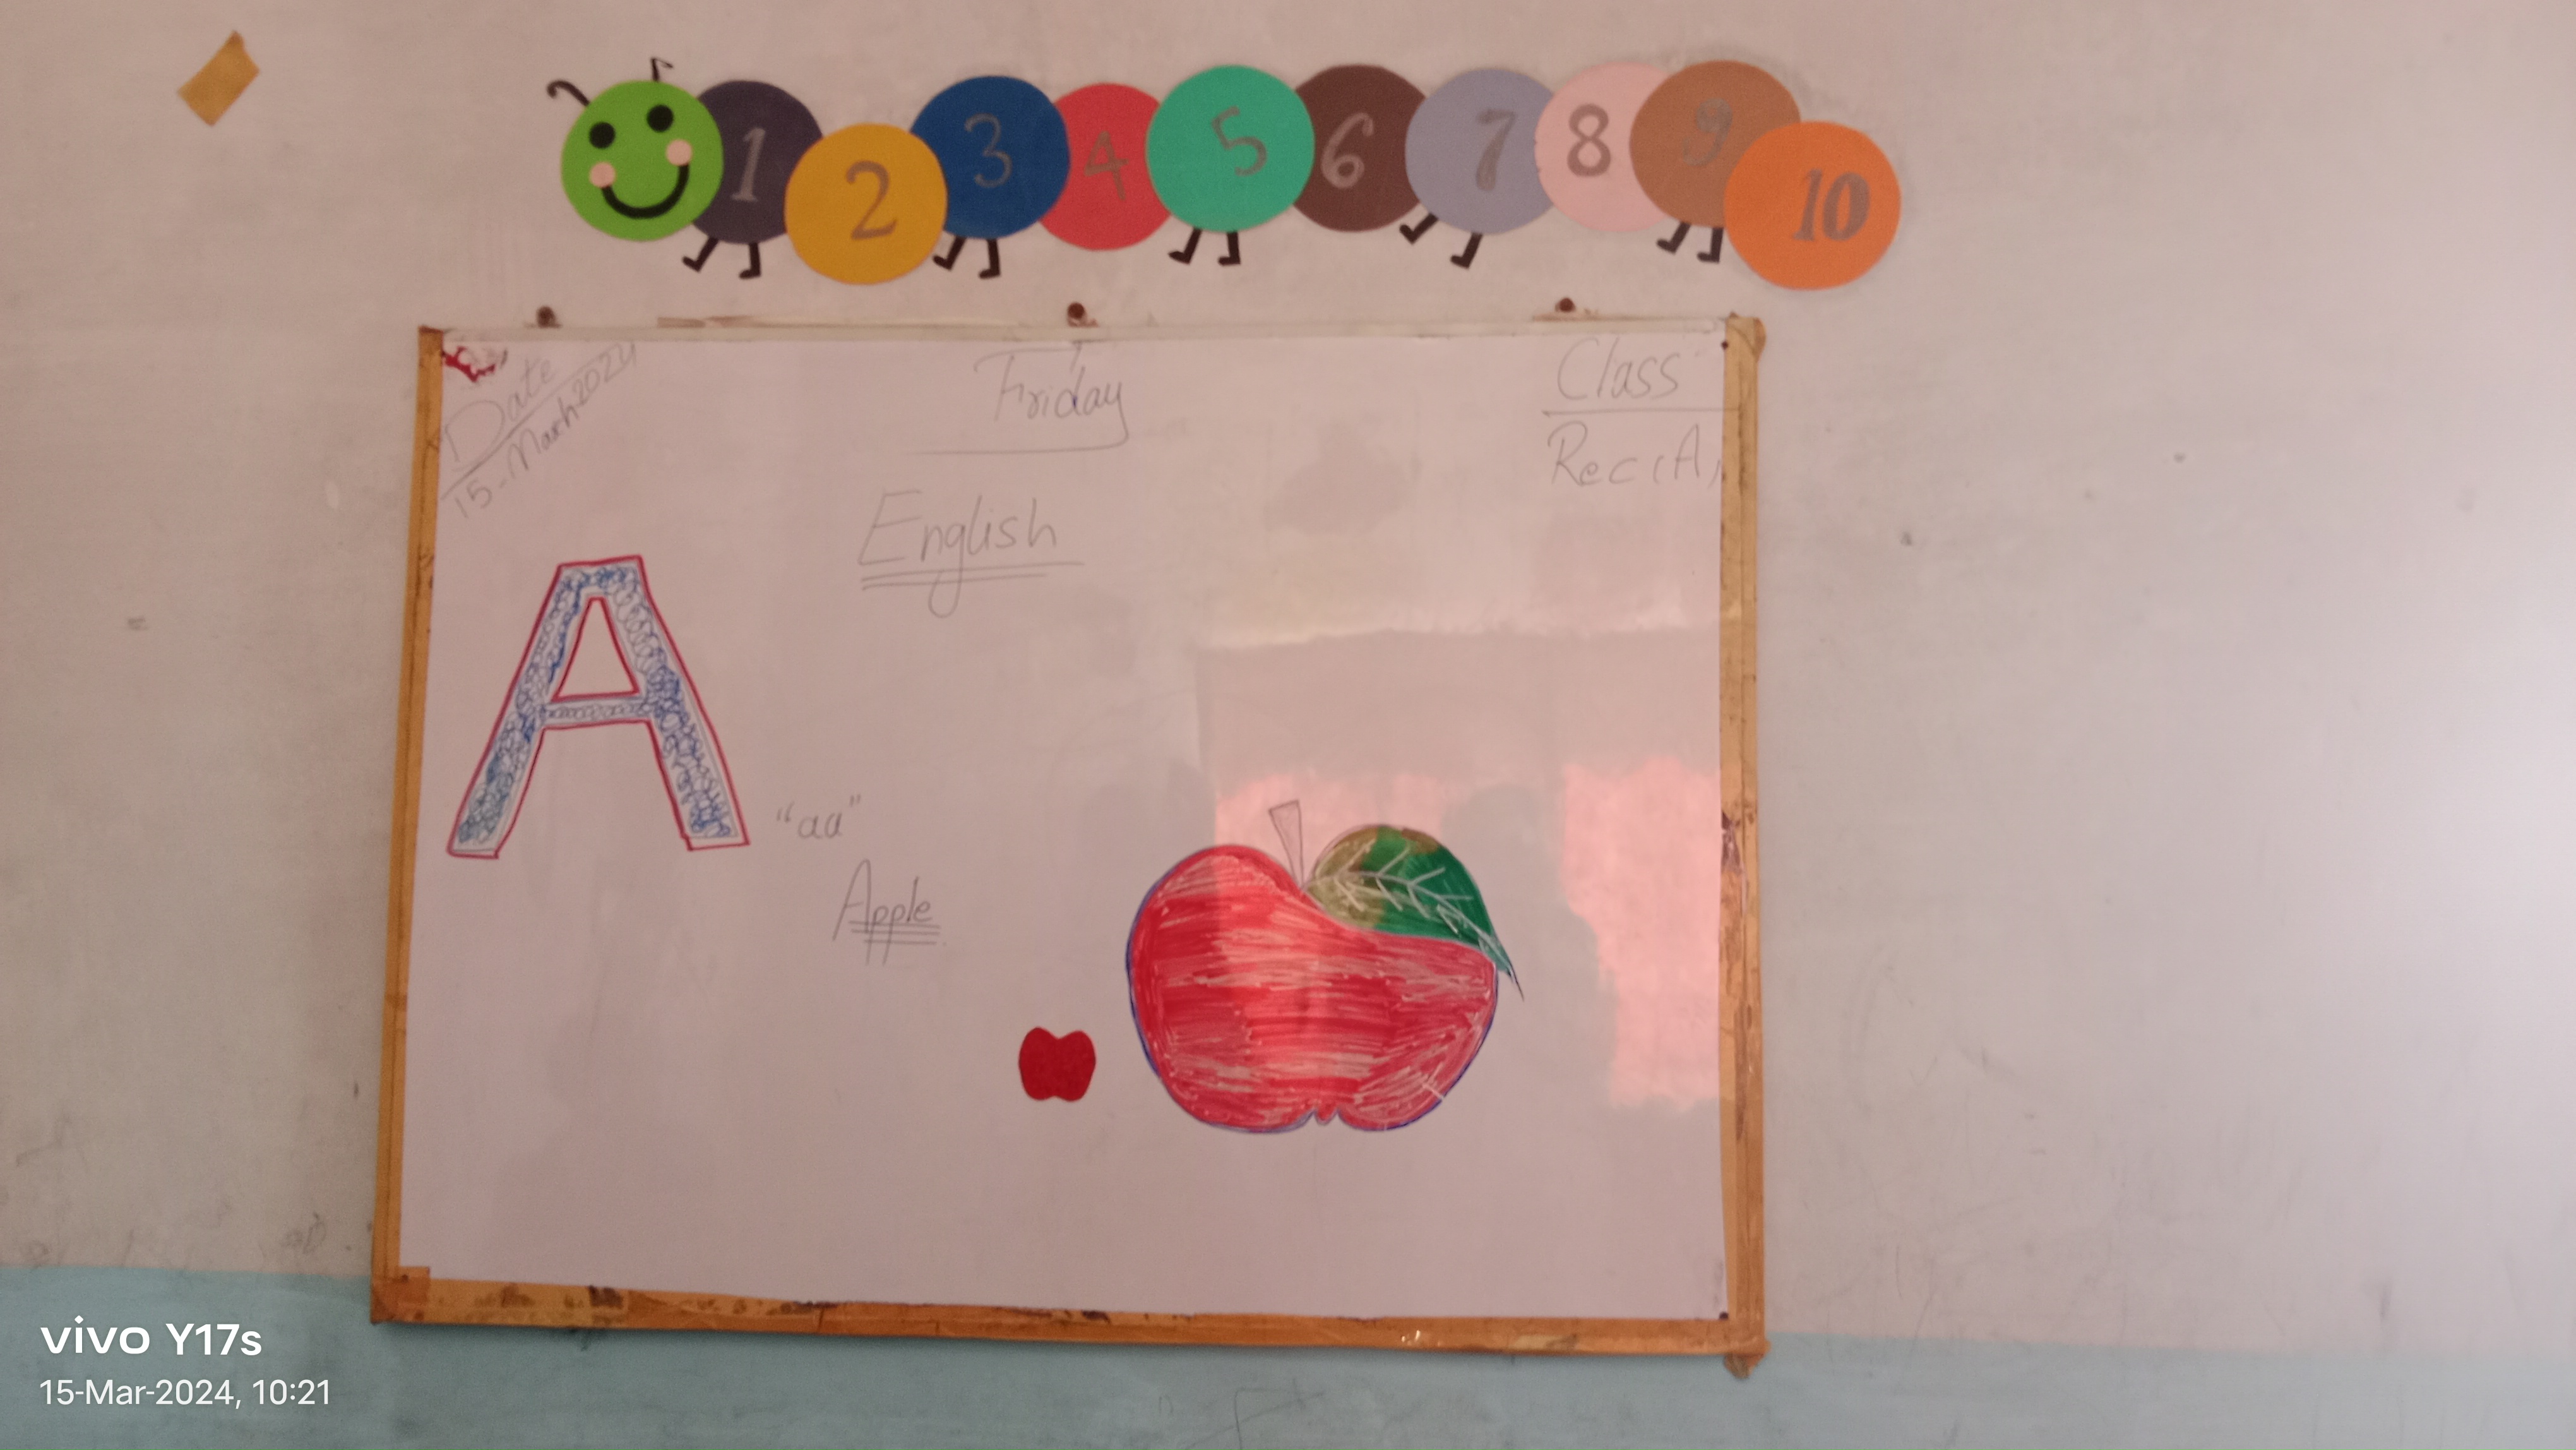 1 2 3 4 5 6 7 8 9 10
Date
15-Marh 2024
Friday
Class
Rec(A)
English
A
"aa"
Apple
vivo Y17s
15-Mar-2024, 10:21